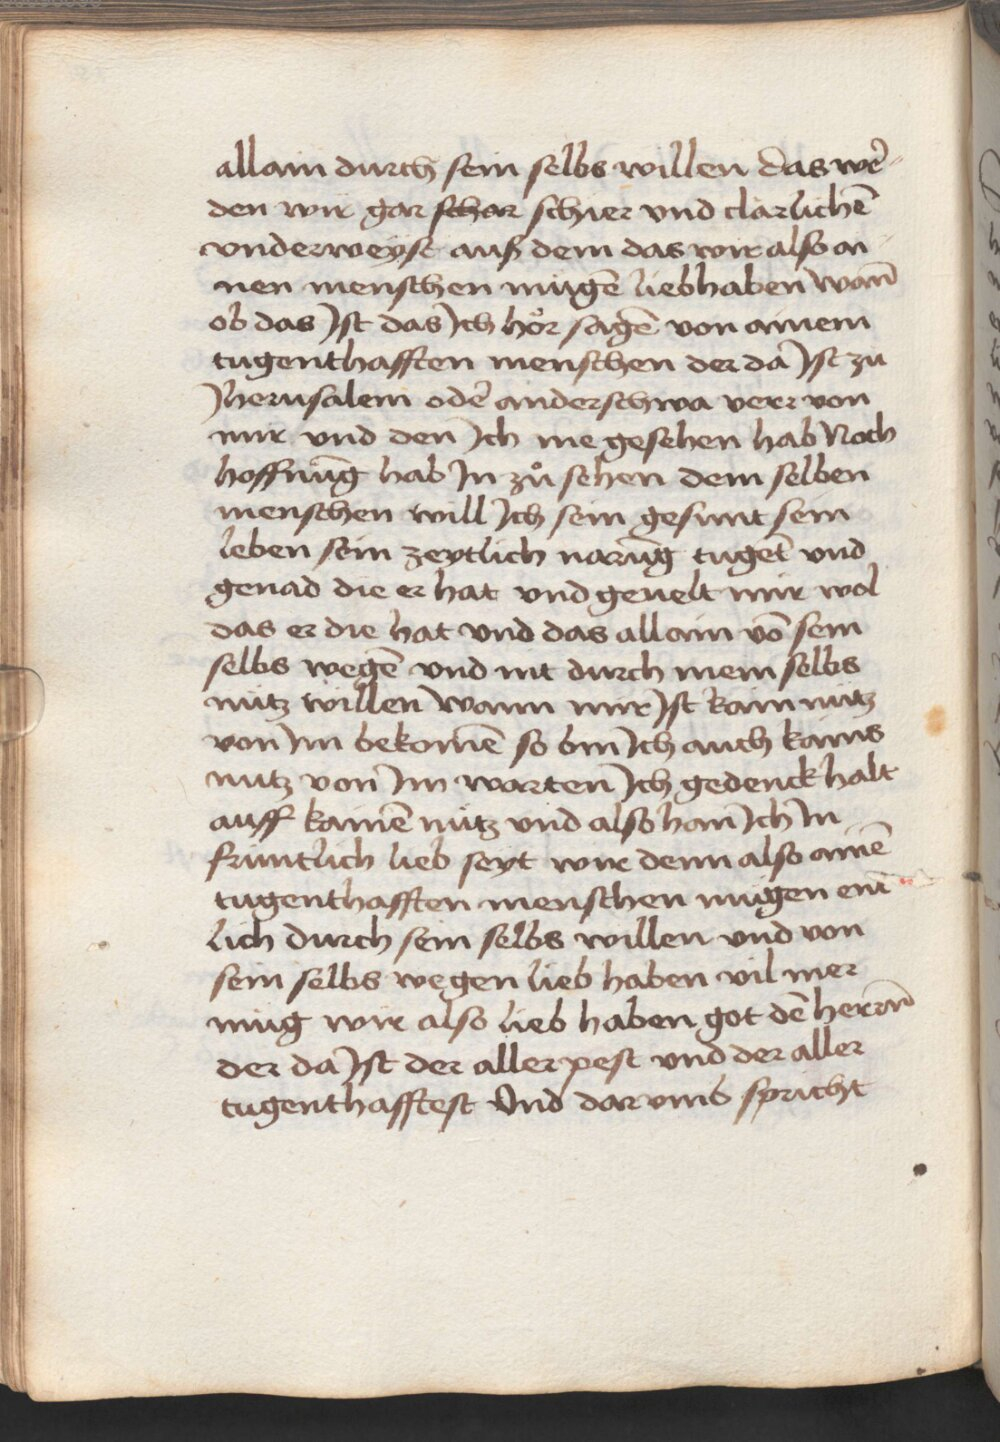 allain durch sein selbs willen das we᷑-
den wir gar schar schier vnd clarlichē
vnderweyst auß dem das wir also ai-
nen menschen mügē liebhaben wan̄
ob das Jst das Jch hör sagē von ainem
tugenthafften menschen der da Jst zu
Jherusalem ode᷑ anderschwa verr von
mir vnd den Jch nie gesehen hab Noch
hoffnūg hab Jn zů sehen dem selben
menschen will Jch sein gesunt sein
leben sein zeytlich narūg tuget̄ vnd
genad die er hat vnd geuelt mir wol
das er die hat vnd das allain vō sein
selbs wegē vnd nit durch mein selbs
nütz willen wann mir Jst kain nütz
von Jm bekomē so bin Jch auch kains
nutz von Jm warten Jch gedenck halt
auff kainē nütz vnd also han Jch Jn
früntlich lieb seyt wir denn also ainē
tugenthafften menschen mügen ent-
lich durch sein selbs willen vnd von
sein selbs wegen lieb haben vil mer
müg wir also lieb haben got dē herrn̄
der da Jst der aller pest vnd der aller
tugenthafftest Vnd dar vmb spricht